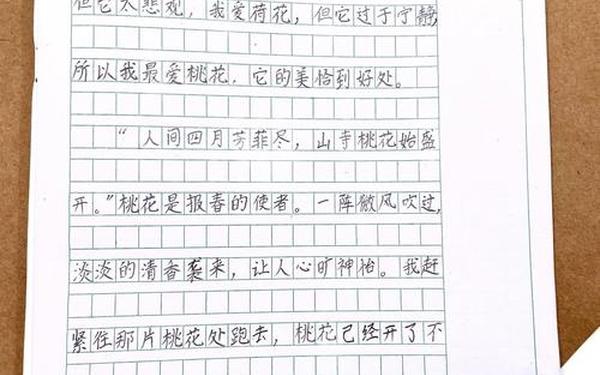 但它太悲观，我爱荷花，但它过于宁静，
所以我最爱桃花，它的美恰到好处。
“人间四月芳菲尽，山寺桃花始盛
开。”桃花是报春的使者。一阵微风吹过，
淡淡的清香袭来，让人心旷神怡。我赶
紧往那片桃花处跑去，桃花已经开了不